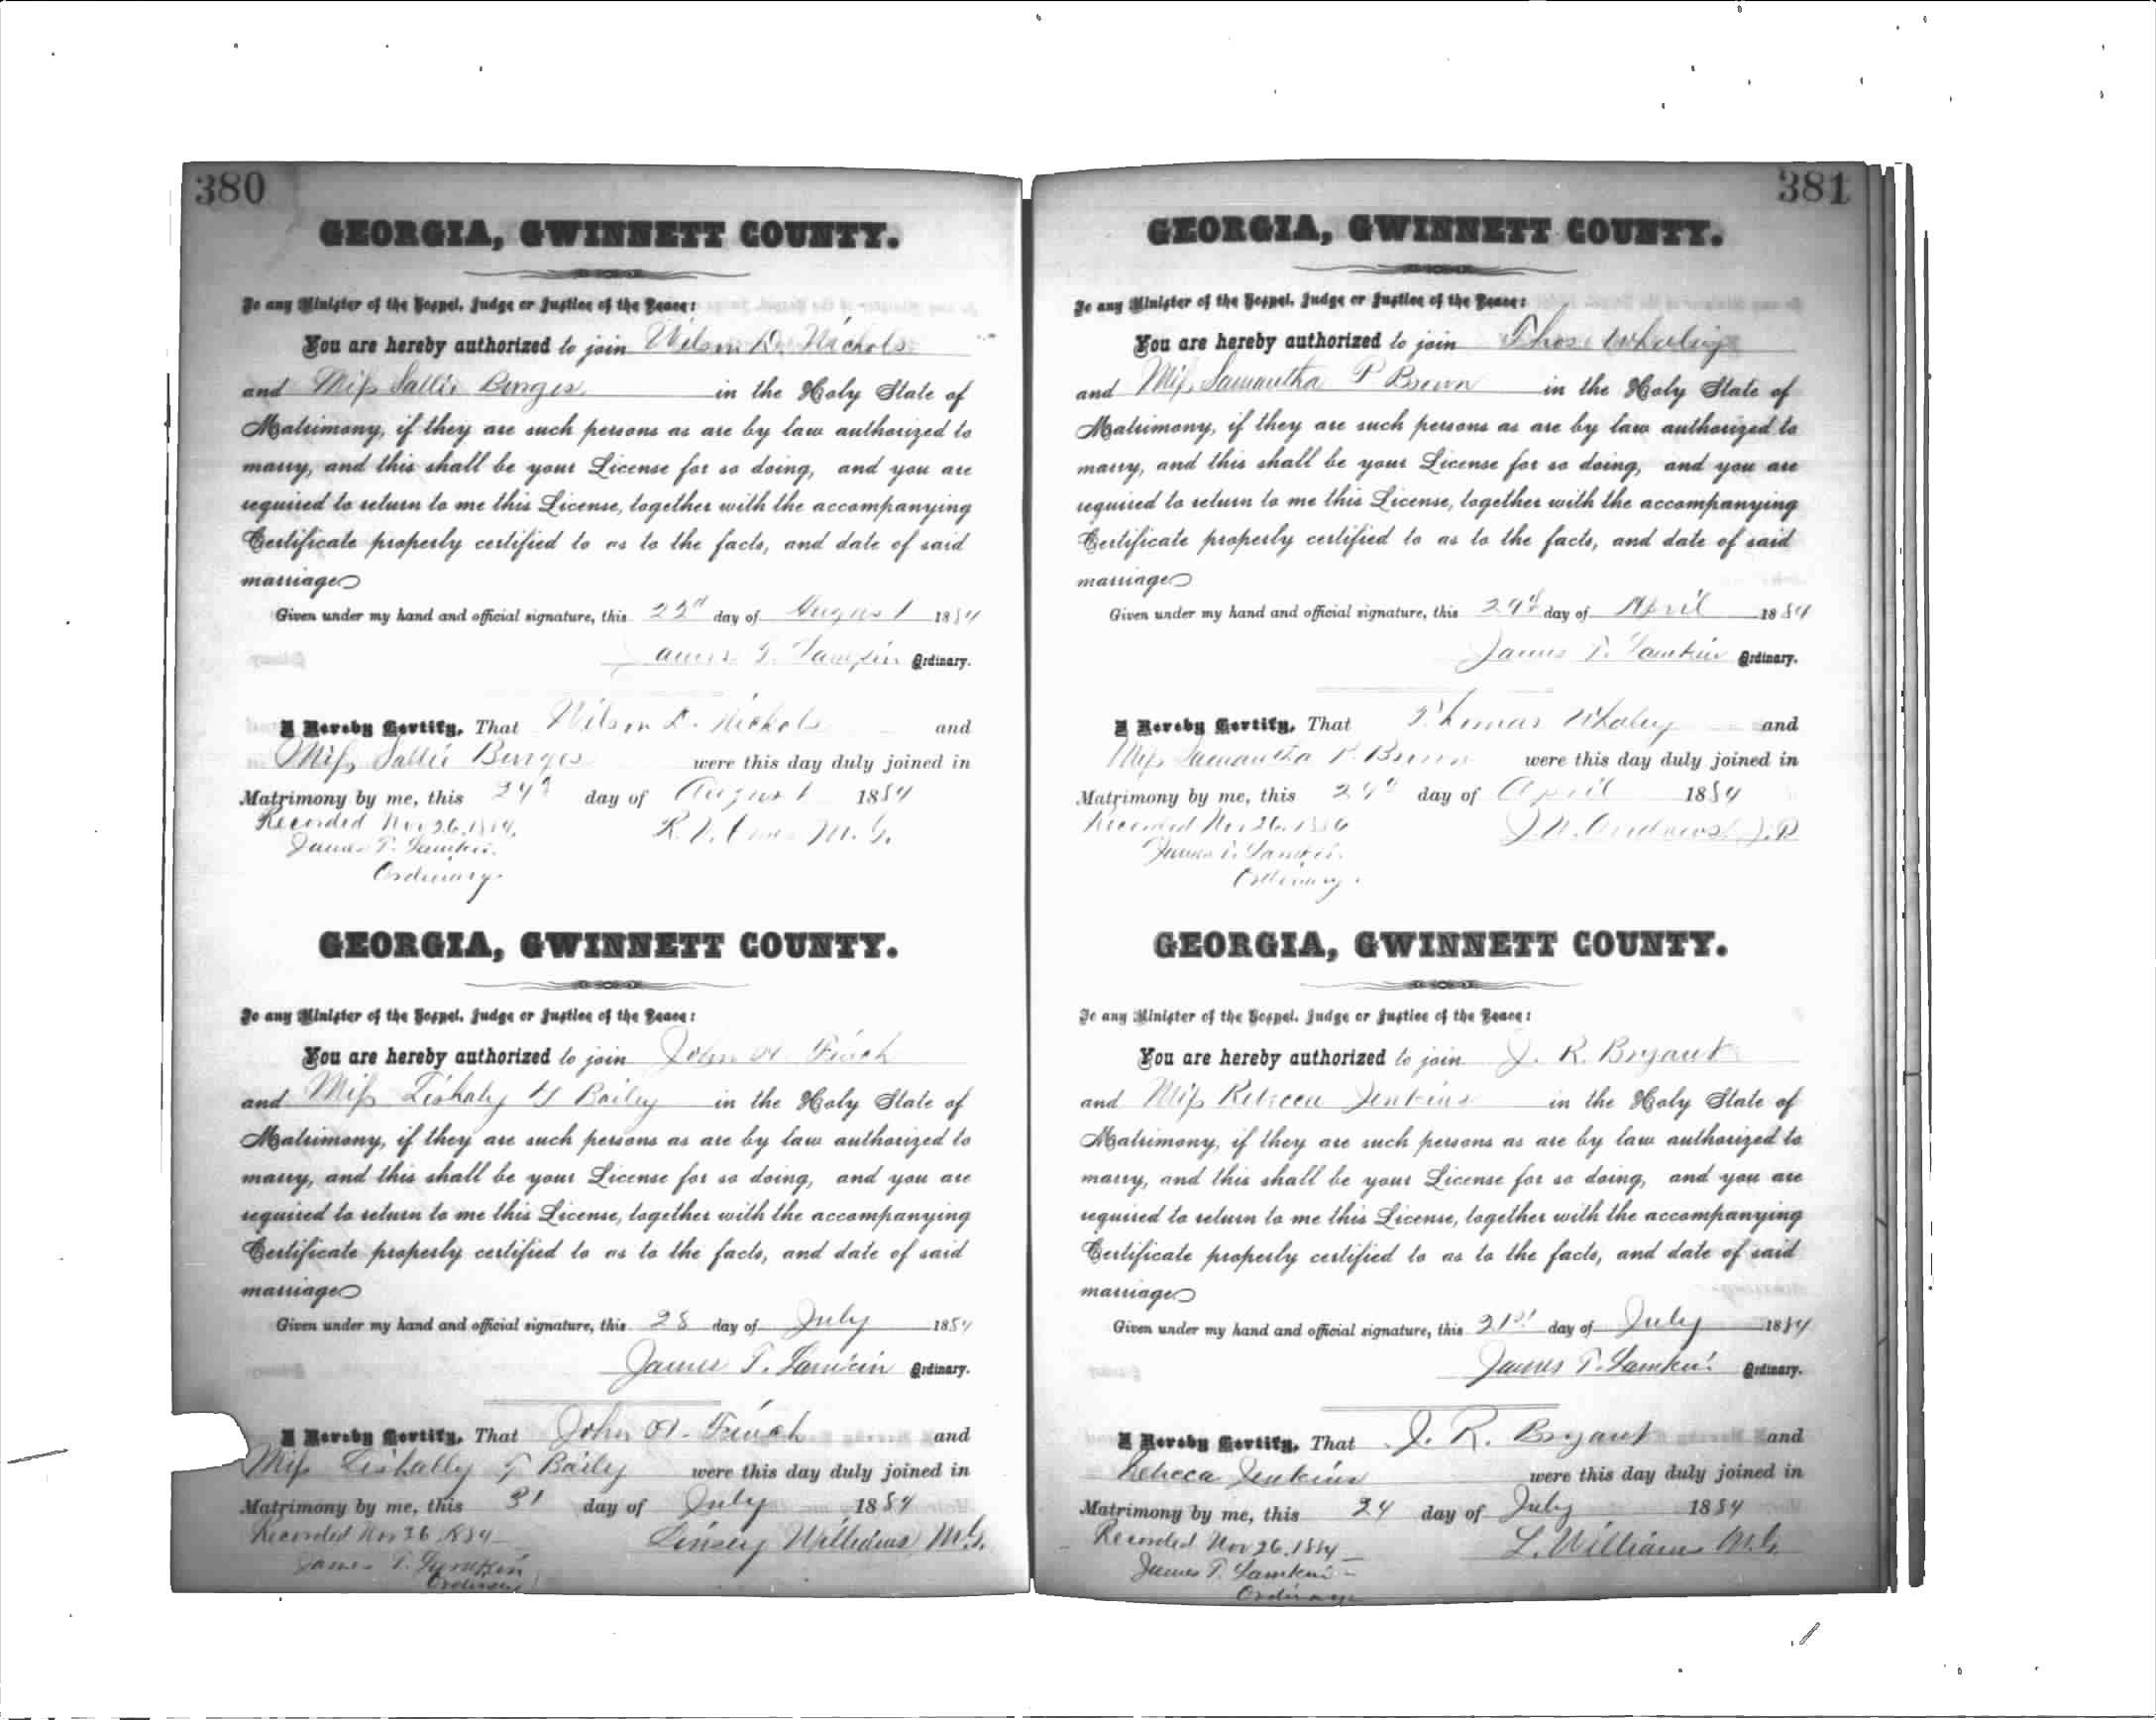 380
GEORGIA, GWINNETT COUNTY.
To any Minister of the Gospel, Judge or Justice of the Peace:
You are hereby authorized to join Wilson D. Nichols
and Miss Sallie Burges in the Holy State of
Matrimony, if they are such persons as are by law authorized to
marry, and this shall be your License for so doing, and you are
required to return to me this License, together with the accompanying
Certificate properly certified to as to the facts, and date of said
marriage
Given under my hand and official signature, this day of August 1884
James T. Lamkin Ordinary.
I Hereby Certify, That Wilson D. Nichols and
Miss Sallie Burges were this day duly joined in
Matrimony by me, this 24th day of August 1884
Recorded Nov 26, 1884. R. M. G.
James T. Lamkin
Ordinary.
GEORGIA, GWINNETT COUNTY.
To any Minister of the Gospel, Judge or Justice of the Peace:
You are hereby authorized to join John Finch
and Miss Baily in the Holy State of
Matrimony, if they are such persons as are by law authorized to
marry, and this shall be your License for so doing, and you are
required to return to me this License, together with the accompanying
Certificate properly certified to as to the facts, and date of said
marriage
Given under my hand and official signature, this 28 day of July 1884
James T. Lamkin Ordinary.
I Hereby Certify, That John Finch and
Miss Baily were this day duly joined in
Matrimony by me, this 31 day of July 1884
Recorded Nov 26, 1884 Williams M.G.
James T. Lamkin
Ordinary
381
GEORGIA, GWINNETT COUNTY.
To any Minister of the Gospel, Judge or Justice of the Peace:
You are hereby authorized to join Thos Whaley
and Miss Samantha P Brown in the Holy State of
Matrimony, if they are such persons as are by law authorized to
marry, and this shall be your License for so doing, and you are
required to return to me this License, together with the accompanying
Certificate properly certified to as to the facts, and date of said
marriage
Given under my hand and official signature, this day of April 1884
James T. Lamkin Ordinary.
I Hereby Certify, That Thomas Whaley and
Miss Samantha P. Brown were this day duly joined in
Matrimony by me, this day of April 1884
Recorded Nov 26, J. N. Andrews J.P.
James T. Lamkin
Ordinary.
GEORGIA, GWINNETT COUNTY.
To any Minister of the Gospel, Judge or Justice of the Peace:
You are hereby authorized to join J. R. Bryant
and Miss Rebecca Jenkins in the Holy State of
Matrimony, if they are such persons as are by law authorized to
marry, and this shall be your License for so doing, and you are
required to return to me this License, together with the accompanying
Certificate properly certified to as to the facts, and date of said
marriage
Given under my hand and official signature, this 21st day of July 1884
James T. Lamkin Ordinary.
I Hereby Certify, That J. R. Bryant and
Rebeca Jenkins were this day duly joined in
Matrimony by me, this 24 day of July 1884
Recorded Nov 26, 1884 L. Williams M.G.
James T. Lamkin
Ordinary